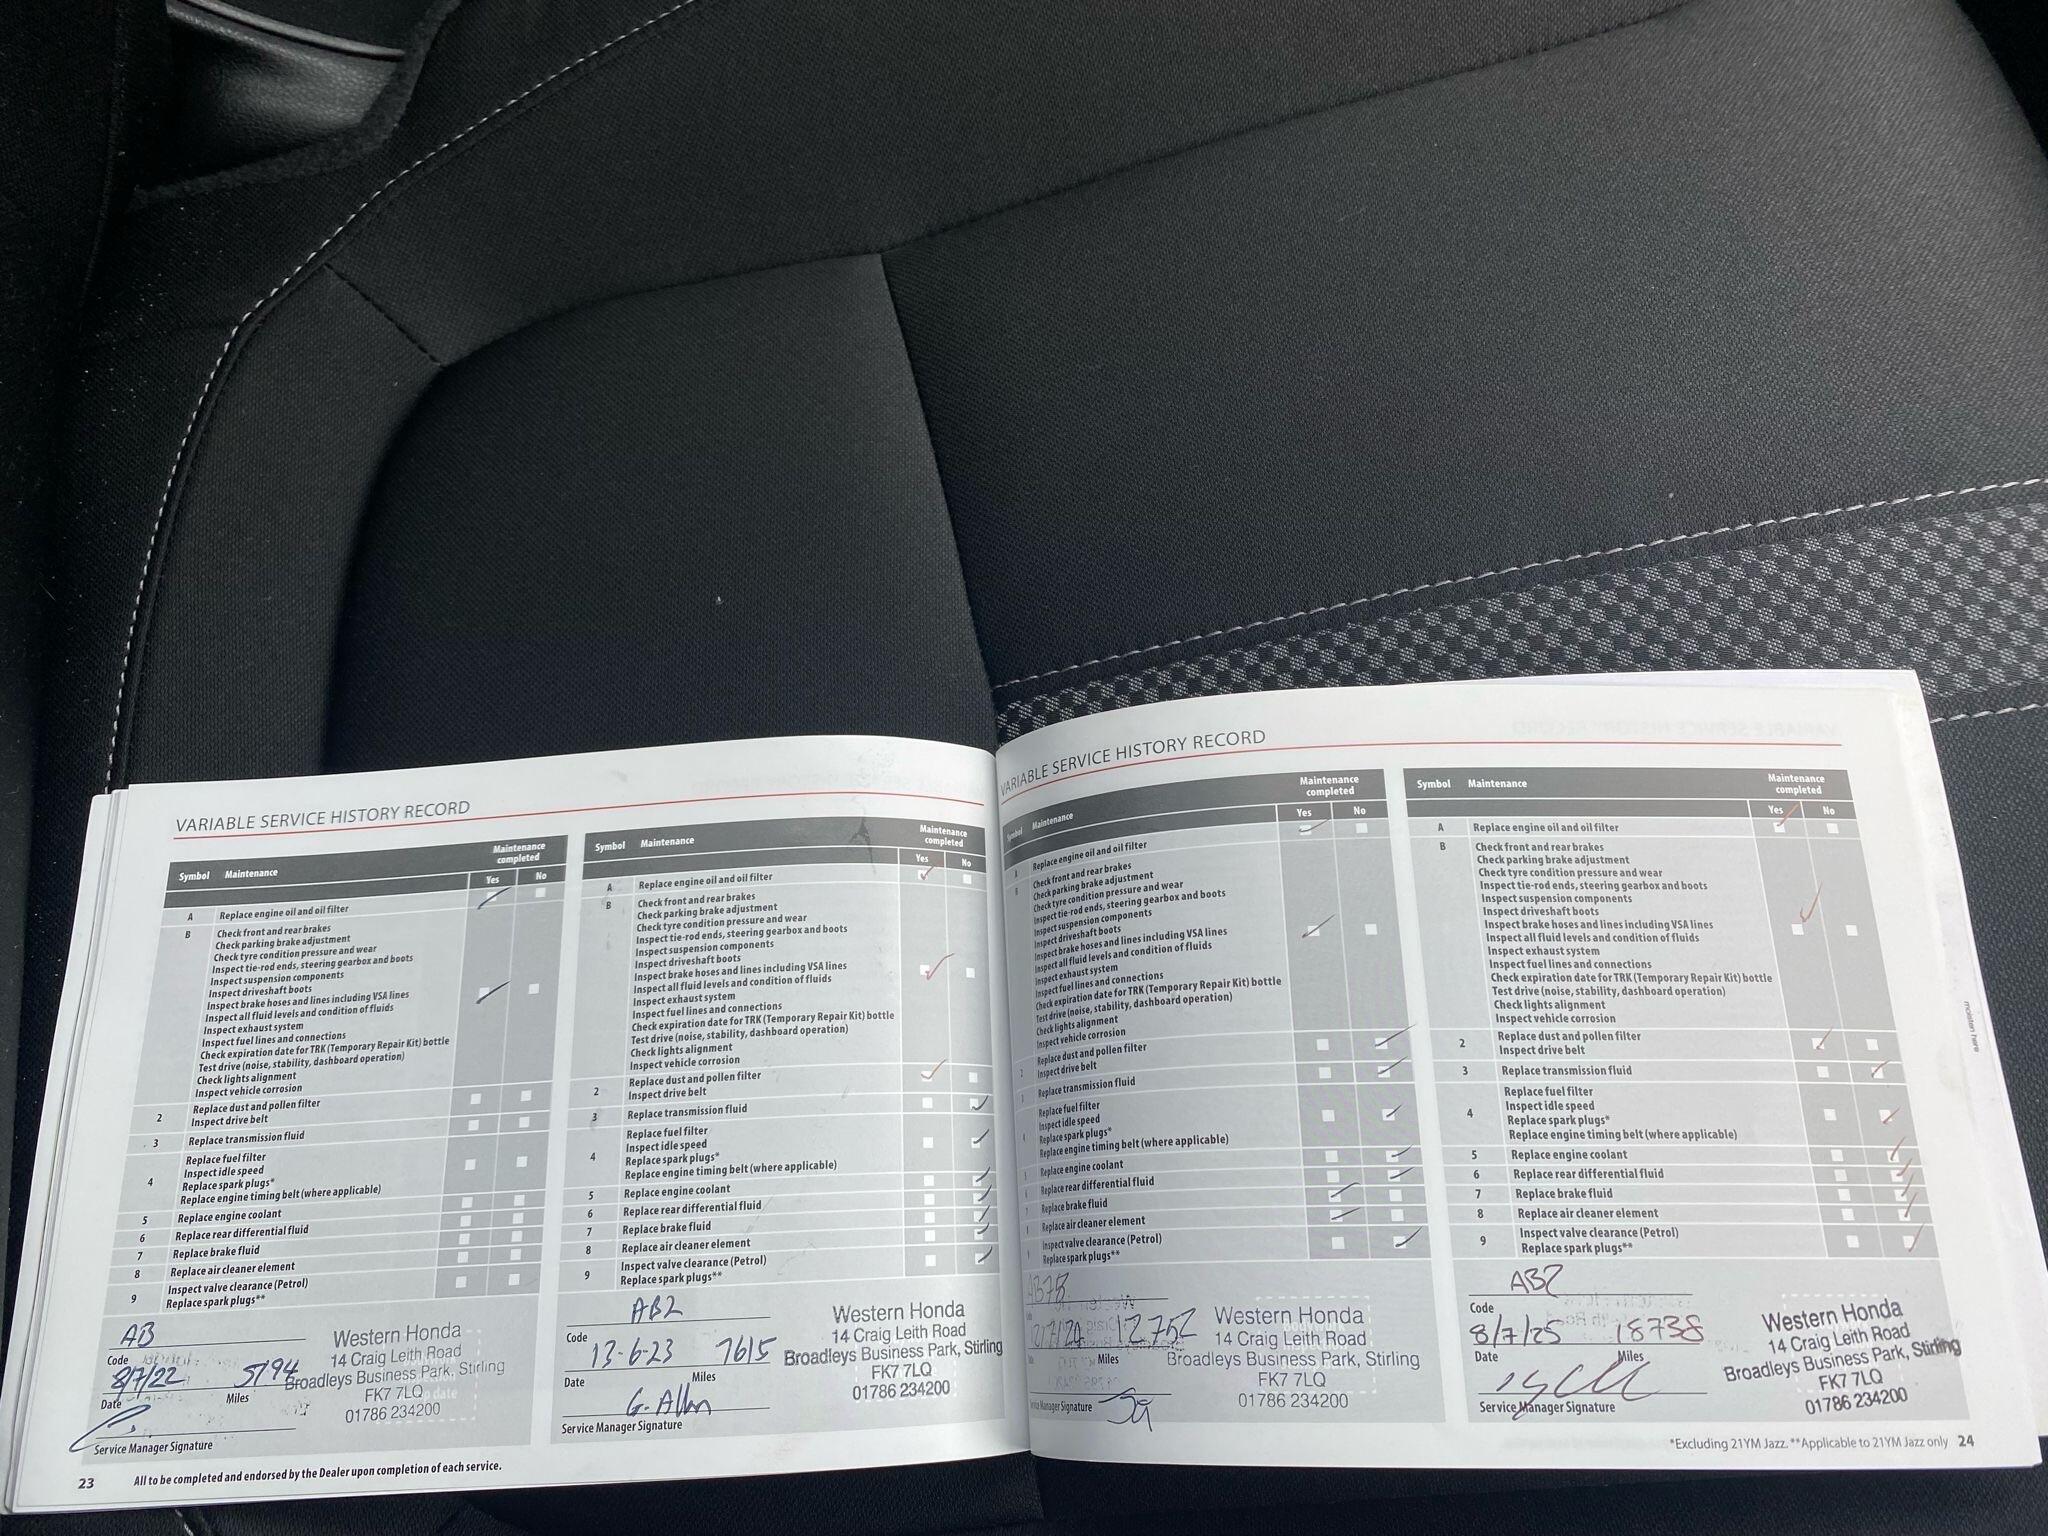 VARIABLE SERVICE HISTORY RECORD
Symbol Maintenance Maintenance completed
Yes No
A Replace engine oil and oil filter
B Check front and rear brakes
Check parking brake adjustment
Check tyre condition pressure and wear
Inspect tie-rod ends, steering gearbox and boots
Inspect suspension components
Inspect driveshaft boots
Inspect brake hoses and lines including VSA lines
Inspect all fluid levels and condition of fluids
Inspect exhaust system
Inspect fuel lines and connections
Check expiration date for TRK (Temporary Repair Kit) bottle
Test drive (noise, stability, dashboard operation)
Check lights alignment
Inspect vehicle corrosion
2 Replace dust and pollen filter
Inspect drive belt
3 Replace transmission fluid
4 Replace fuel filter
Inspect idle speed
Replace spark plugs*
Replace engine timing belt (where applicable)
5 Replace engine coolant
6 Replace rear differential fluid
7 Replace brake fluid
8 Replace air cleaner element
9 Inspect valve clearance (Petrol)
Replace spark plugs**
AB
Code
8/7/22 5194
Date Miles
Service Manager Signature
Western Honda
14 Craig Leith Road
Broadleys Business Park, Stirling
FK7 7LQ
01786 234200
Symbol Maintenance Maintenance completed
Yes No
A Replace engine oil and oil filter
B Check front and rear brakes
Check parking brake adjustment
Check tyre condition pressure and wear
Inspect tie-rod ends, steering gearbox and boots
Inspect suspension components
Inspect driveshaft boots
Inspect brake hoses and lines including VSA lines
Inspect all fluid levels and condition of fluids
Inspect exhaust system
Inspect fuel lines and connections
Check expiration date for TRK (Temporary Repair Kit) bottle
Test drive (noise, stability, dashboard operation)
Check lights alignment
Inspect vehicle corrosion
2 Replace dust and pollen filter
Inspect drive belt
3 Replace transmission fluid
4 Replace fuel filter
Inspect idle speed
Replace spark plugs*
Replace engine timing belt (where applicable)
5 Replace engine coolant
6 Replace rear differential fluid
7 Replace brake fluid
8 Replace air cleaner element
9 Inspect valve clearance (Petrol)
Replace spark plugs**
AB2
Code
13-6-23 7615
Date Miles
G. Allan
Service Manager Signature
Western Honda
14 Craig Leith Road
Broadleys Business Park, Stirling
FK7 7LQ
01786 234200
23 All to be completed and endorsed by the Dealer upon completion of each service.
VARIABLE SERVICE HISTORY RECORD
Symbol Maintenance Maintenance completed
Yes No
Replace engine oil and oil filter
Check front and rear brakes
Check parking brake adjustment
Check tyre condition pressure and wear
Inspect tie-rod ends, steering gearbox and boots
Inspect suspension components
Inspect driveshaft boots
Inspect brake hoses and lines including VSA lines
Inspect all fluid levels and condition of fluids
Inspect exhaust system
Inspect fuel lines and connections
Check expiration date for TRK (Temporary Repair Kit) bottle
Test drive (noise, stability, dashboard operation)
Check lights alignment
Inspect vehicle corrosion
Replace dust and pollen filter
Inspect drive belt
Replace transmission fluid
Replace fuel filter
Inspect idle speed
Replace spark plugs*
Replace engine timing belt (where applicable)
Replace engine coolant
Replace rear differential fluid
Replace brake fluid
Replace air cleaner element
Inspect valve clearance (Petrol)
Replace spark plugs**
AB78
12752
Miles
Manager Signature
Western Honda
14 Craig Leith Road
Broadleys Business Park, Stirling
FK7 7LQ
01786 234200
Symbol Maintenance Maintenance completed
Yes No
A Replace engine oil and oil filter
B Check front and rear brakes
Check parking brake adjustment
Check tyre condition pressure and wear
Inspect tie-rod ends, steering gearbox and boots
Inspect suspension components
Inspect driveshaft boots
Inspect brake hoses and lines including VSA lines
Inspect all fluid levels and condition of fluids
Inspect exhaust system
Inspect fuel lines and connections
Check expiration date for TRK (Temporary Repair Kit) bottle
Test drive (noise, stability, dashboard operation)
Check lights alignment
Inspect vehicle corrosion
2 Replace dust and pollen filter
Inspect drive belt
3 Replace transmission fluid
4 Replace fuel filter
Inspect idle speed
Replace spark plugs*
Replace engine timing belt (where applicable)
5 Replace engine coolant
6 Replace rear differential fluid
7 Replace brake fluid
8 Replace air cleaner element
9 Inspect valve clearance (Petrol)
Replace spark plugs**
AB2
Code
8/7/25 18738
Date Miles
Service Manager Signature
Western Honda
14 Craig Leith Road
Broadleys Business Park, Stirling
FK7 7LQ
01786 234200
*Excluding 21YM Jazz. **Applicable to 21YM Jazz only 24
moisten here